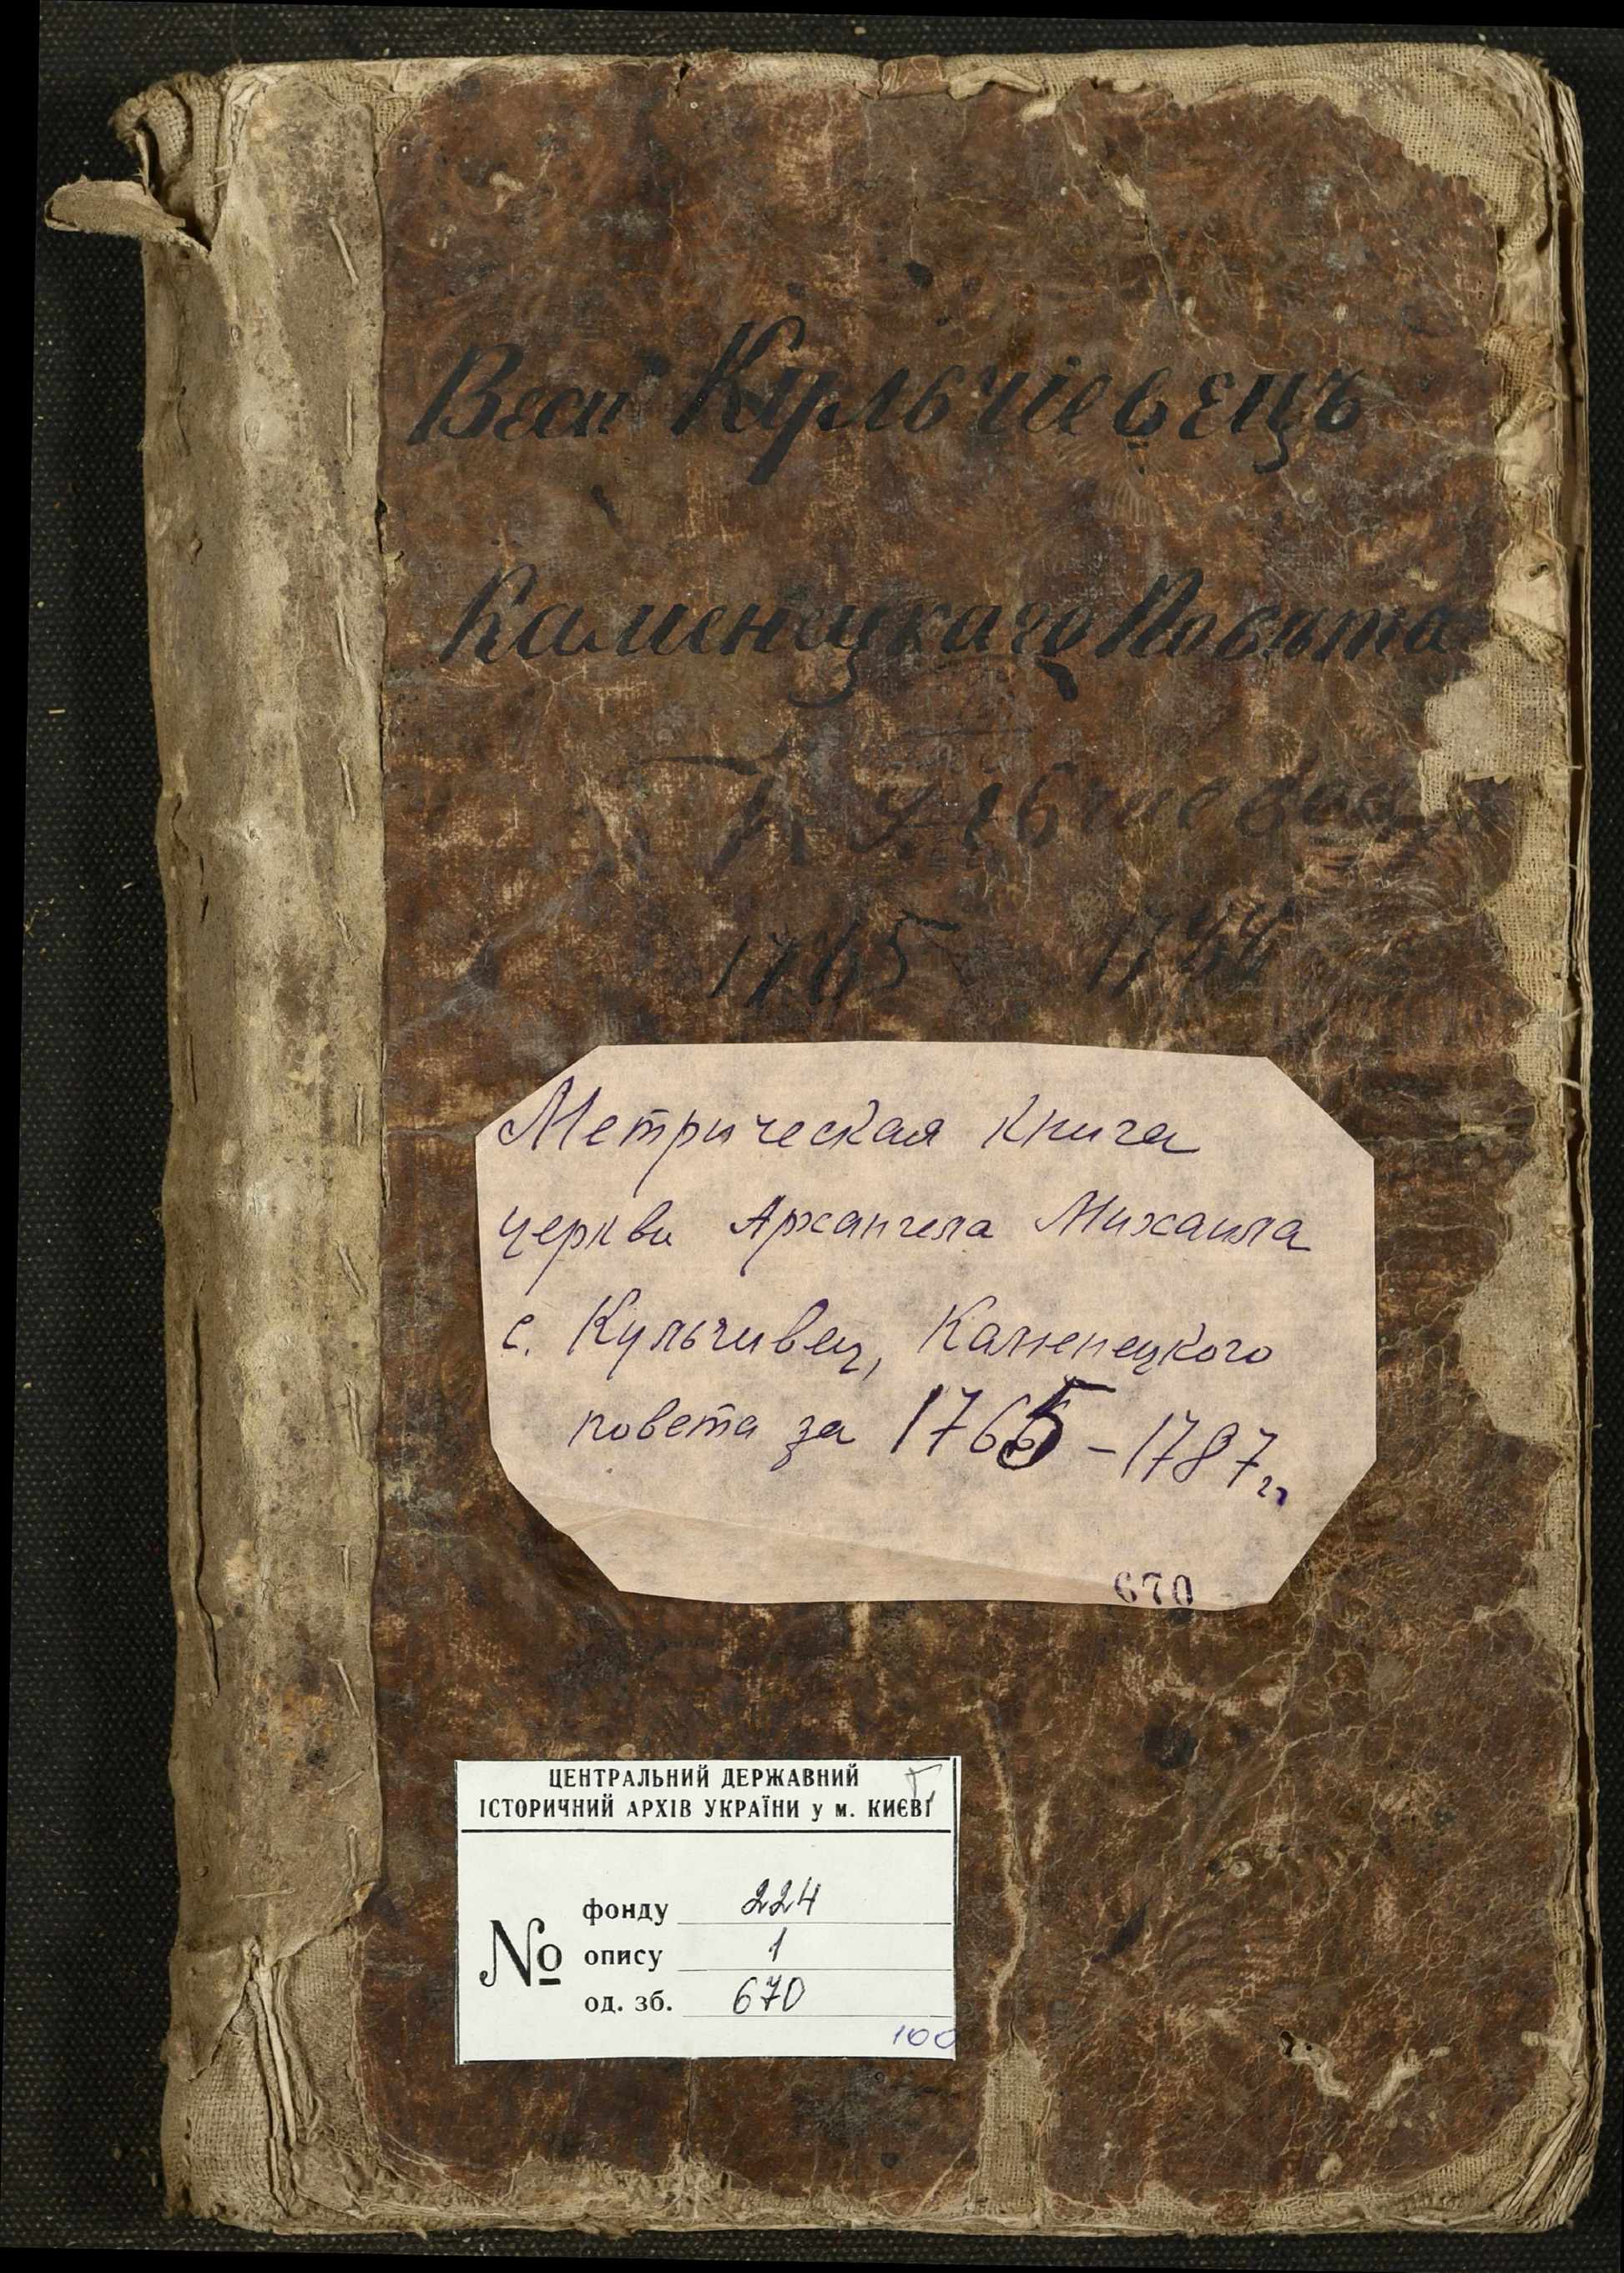 Веси Кульчіевецъ
Каменецкаго Повѣта
1765 1788
Метрическая книга
церкви Архангела Михаила
с. Кульчивец, Каменецкого
повета за 1765 - 1787 гг.
670
ЦЕНТРАЛЬНИЙ ДЕРЖАВНИЙ
ІСТОРИЧНИЙ АРХІВ УКРАЇНИ у м. КИЄВІ
№
фонду 224
опису 1
од. зб. 670
100